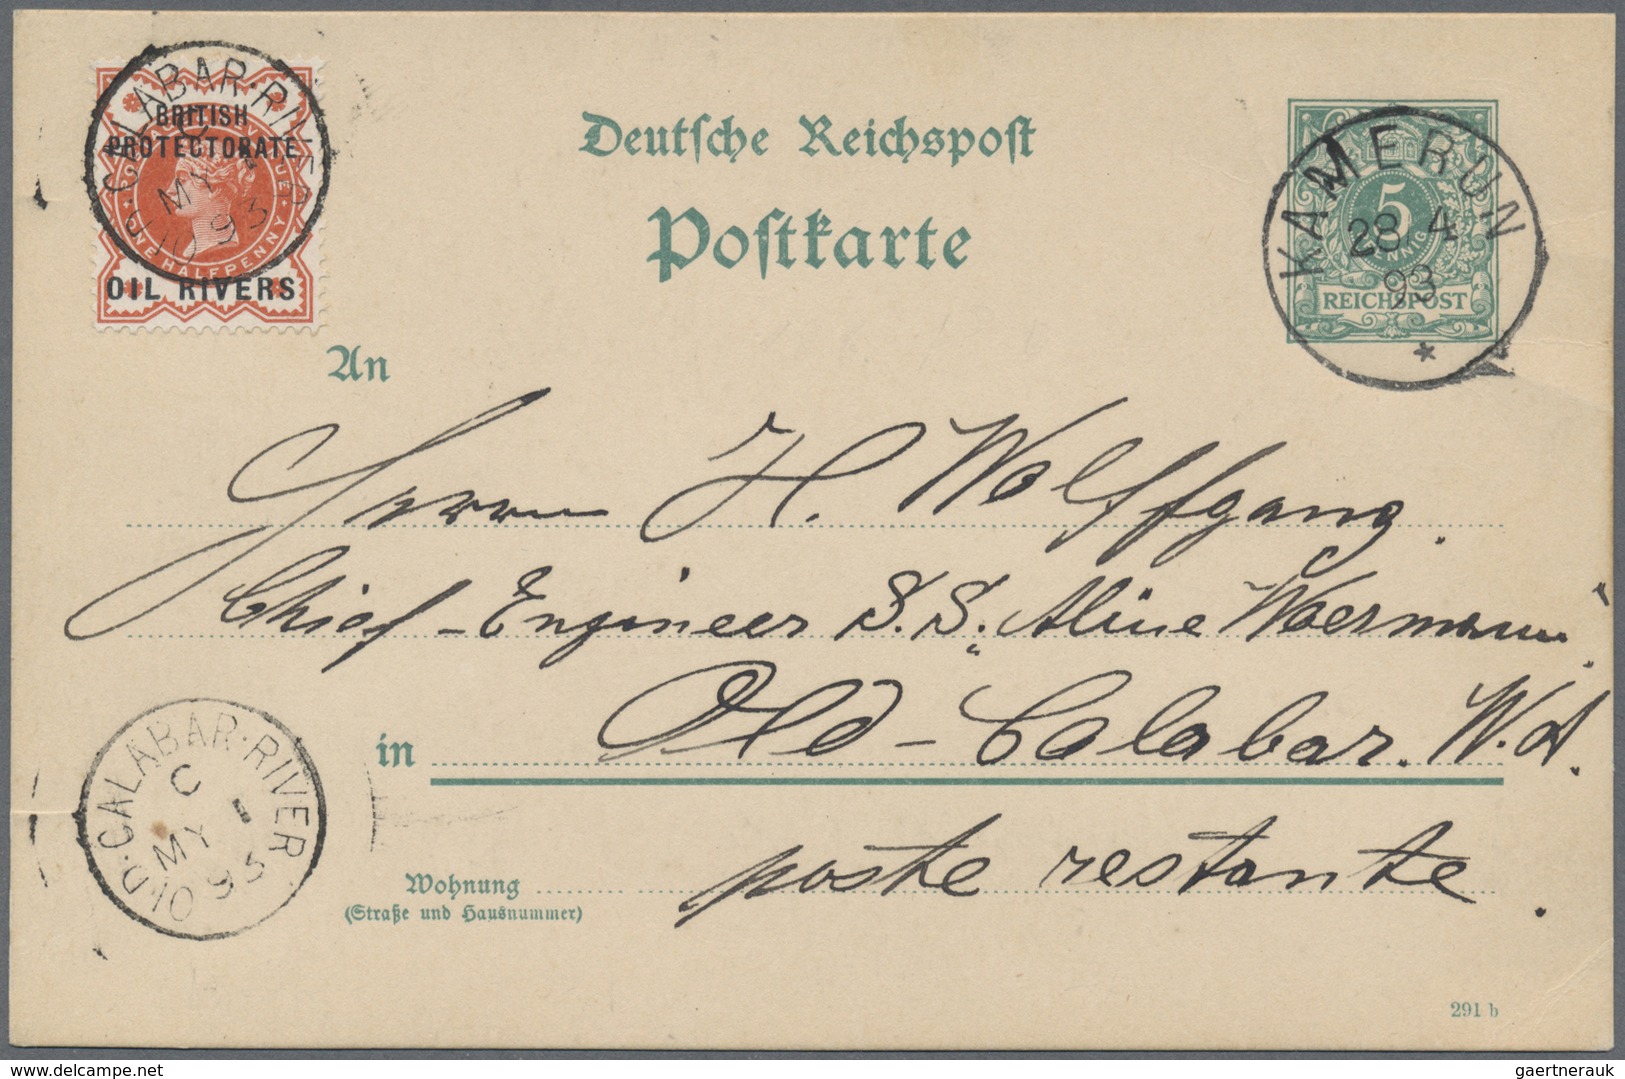 OLD·CALABAR·RIVER
C
MY 1
93
BRITISH
PROTECTORATE
ONE HALFPENNY
OIL RIVERS
Deutsche Reichspost
Postkarte
KAMERUN
28 4
93
*
5
PFENNIG
REICHSPOST
An
Herrn H. Wolffgang.
Chief-Engineer S.S. „Aline Woermann"
in Old-Calabar. W.A.
Wohnung poste restante.
(Straße und Hausnummer)
OLD·CALABAR·RIVER
C
MY 1
93
291 b
www.delcampe.net
gaertnerauk